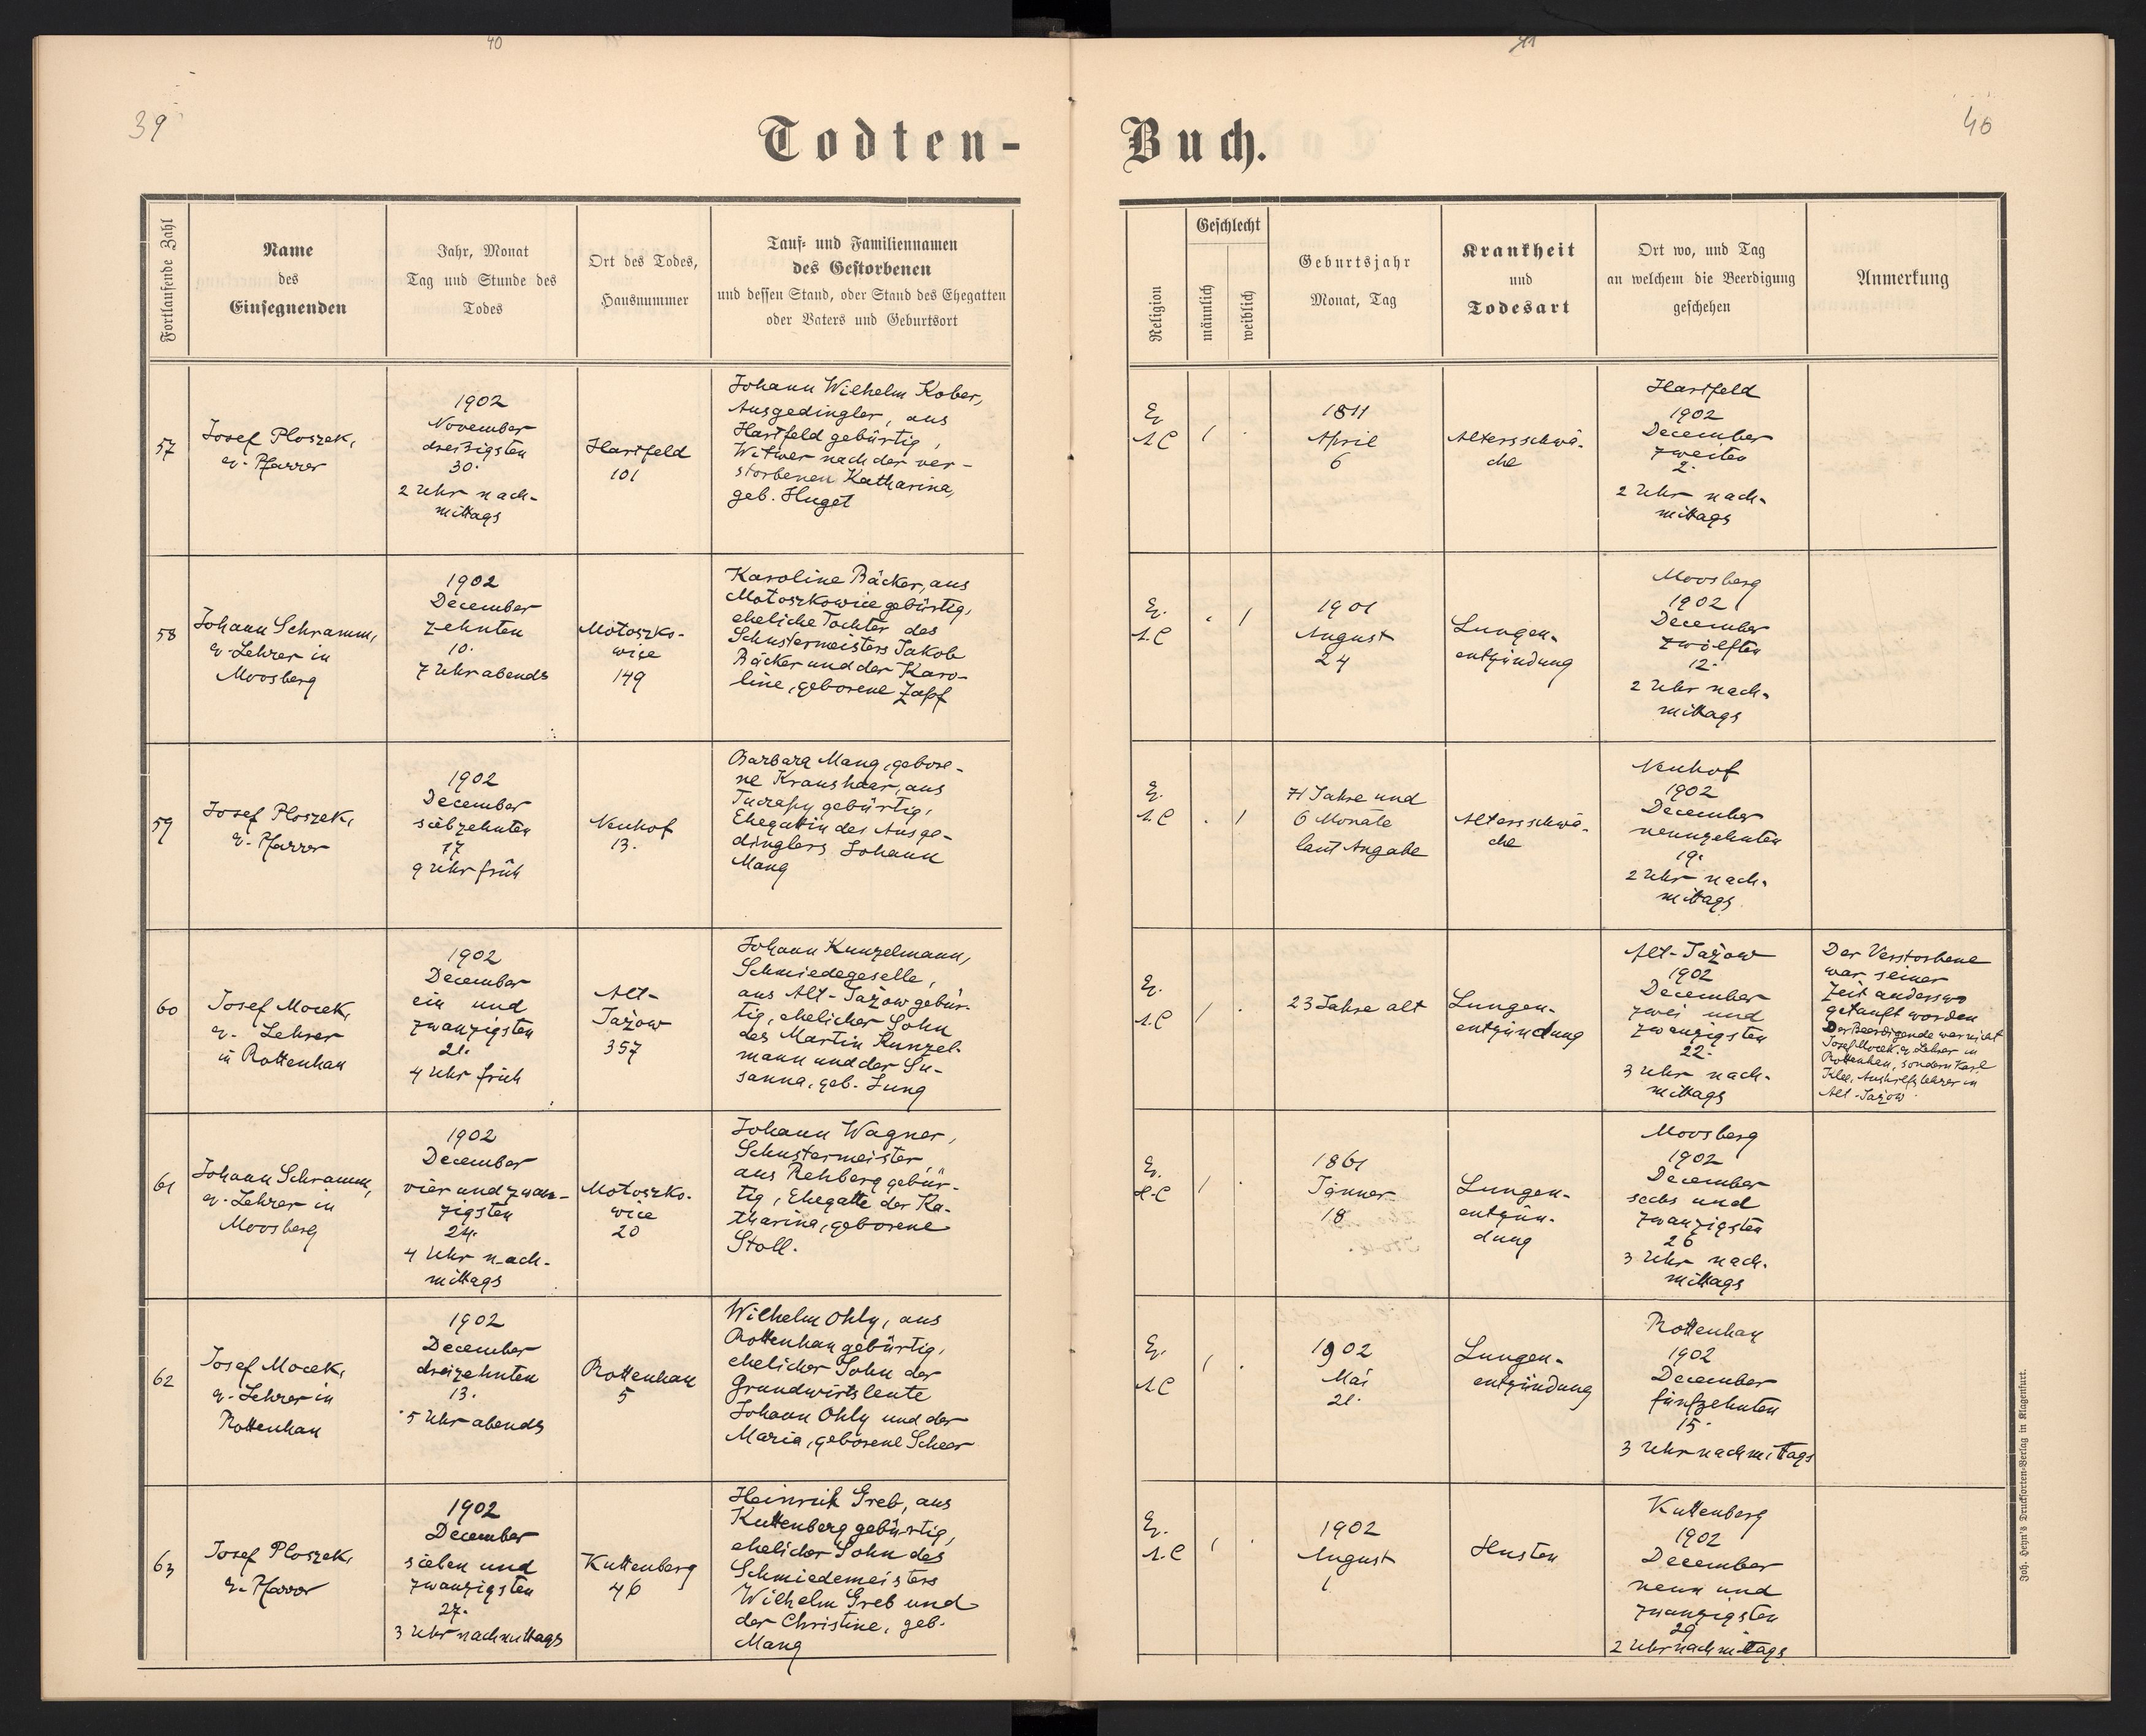 40
41
39
40
Todten-
Buch.
Fortlaufende Zahl
Name
des
Einsegnenden
Jahr, Monat
Tag und Stunde des
Todes
Ort des Todes,
Hausnummer
Tauf- und Familiennamen
des Gestorbenen
und dessen Stand, oder Stand des Ehegatten
oder Vaters und Geburtsort
Religion
Geschlecht
männlich
weiblich
Geburtsjahr
Monat, Tag
Krankheit
und
Todesart
Ort wo, und Tag
an welchem die Beerdigung
geschehen
Anmerkung
57
Josef Ploszek,
ev. Pfarrer
1902
November
dreißigsten
30.
2 Uhr nach-
mittags
Hartfeld
101
Johann Wilhelm Kober,
Ausgedingler, aus
Hartfeld gebürtig,
Witwer nach der ver-
storbenen Katharina,
geb. Huget
Ev.
A.C
1811
April
6
Altersschwä-
che
Hartfeld
1902
December
zweiten
2.
2 Uhr nach-
mittags
58
Johann Schramm,
ev. Lehrer in
Moosberg
1902
December
zehnten
10.
7 Uhr abends
Motoszko-
wice
149
Karoline Bäcker, aus
Motoszkowice gebürtig,
eheliche Tochter des
Schustermeisters Jakob
Bäcker und der Karo-
line, geborene Zapf
Ev.
A.C
1901
August
24
Lungen-
entzündung
Moosberg
1902
December
zwölften
12.
2 Uhr nach-
mittags
59
Josef Ploszek,
ev. Pfarrer
1902
December
siebzehnten
17
9 Uhr früh
Neuhof
13.
Barbara Mang, gebore-
ne Kraushaar, aus
gebürtig,
Ehegattin des Ausge-
dinglers Johann
Mang
Ev.
A.C
71 Jahre und
6 Monate
laut Angabe
Altersschwä-
che
Neuhof
1902
December
neunzehnten
19.
2 Uhr nach-
mittags
60
Josef Mocek,
ev. Lehrer
in Rottenhan
1902
December
ein und
zwanzigsten
21.
4 Uhr früh
Alt-
Jażow
357
Johann Kunzelmann,
Schmiedegeselle,
aus Alt-Jażow gebür-
tig, ehelicher Sohn
des Martin Kunzel-
mann und der Su-
sanna, geb. Jung
Ev.
A.C
23 Jahre alt
Lungen-
entzündung
Alt-Jażow
1902
December
zwei und
zwanzigsten
22.
3 Uhr nach-
mittags
Der Verstorbene
war seiner
Zeit anderswo
getauft worden
Der Beerdigende war nicht
Josef Mocek, ev. Lehrer in
Rottenhan, sondern Karl
Klee, Aushilfslehrer in
Alt-Jażow
61
Johann Schramm,
ev. Lehrer in
Moosberg
1902
December
vier und zwan-
zigsten
24.
4 Uhr nach-
mittags
Motoszko-
wice
20
Johann Wagner,
Schustermeister
aus Rehberg gebür-
tig, Ehegatte der Ka-
tharina, geborene
Stoll.
Ev.
H.C
1861
Jänner
18
Lungen-
entzün-
dung
Moosberg
1902
December
sechs und
zwanzigsten
26
3 Uhr nach-
mittags
62
Josef Mocek,
ev. Lehrer in
Rottenhan
1902
December
dreizehnten
13.
5 Uhr abends
Rottenhan
5
Wilhelm Ohly, aus
Rottenhan gebürtig,
ehelicher Sohn der
Grundwirtsleute
Johann Ohly und der
Maria, geborene Scheer
Ev.
A.C
1902
Mai
21.
Lungen-
entzündung
Rottenhan
1902
December
fünfzehnten
15.
3 Uhr nachmittags
63
Josef Ploszek,
ev. Pfarrer
1902
December
sieben und
zwanzigsten
27.
3 Uhr nachmittags
Kuttenberg
46
Heinrich Greb, aus
Kuttenberg gebürtig,
ehelicher Sohn des
Schmiedemeisters
Wilhelm Greb und
der Christine, geb.
Mang
Ev.
A.C
1902
August
1
Husten
Kuttenberg
1902
December
neun und
zwanzigsten
29
2 Uhr nachmittags
Joh. Heyn's Drucksorten-Verlag in Klagenfurt.